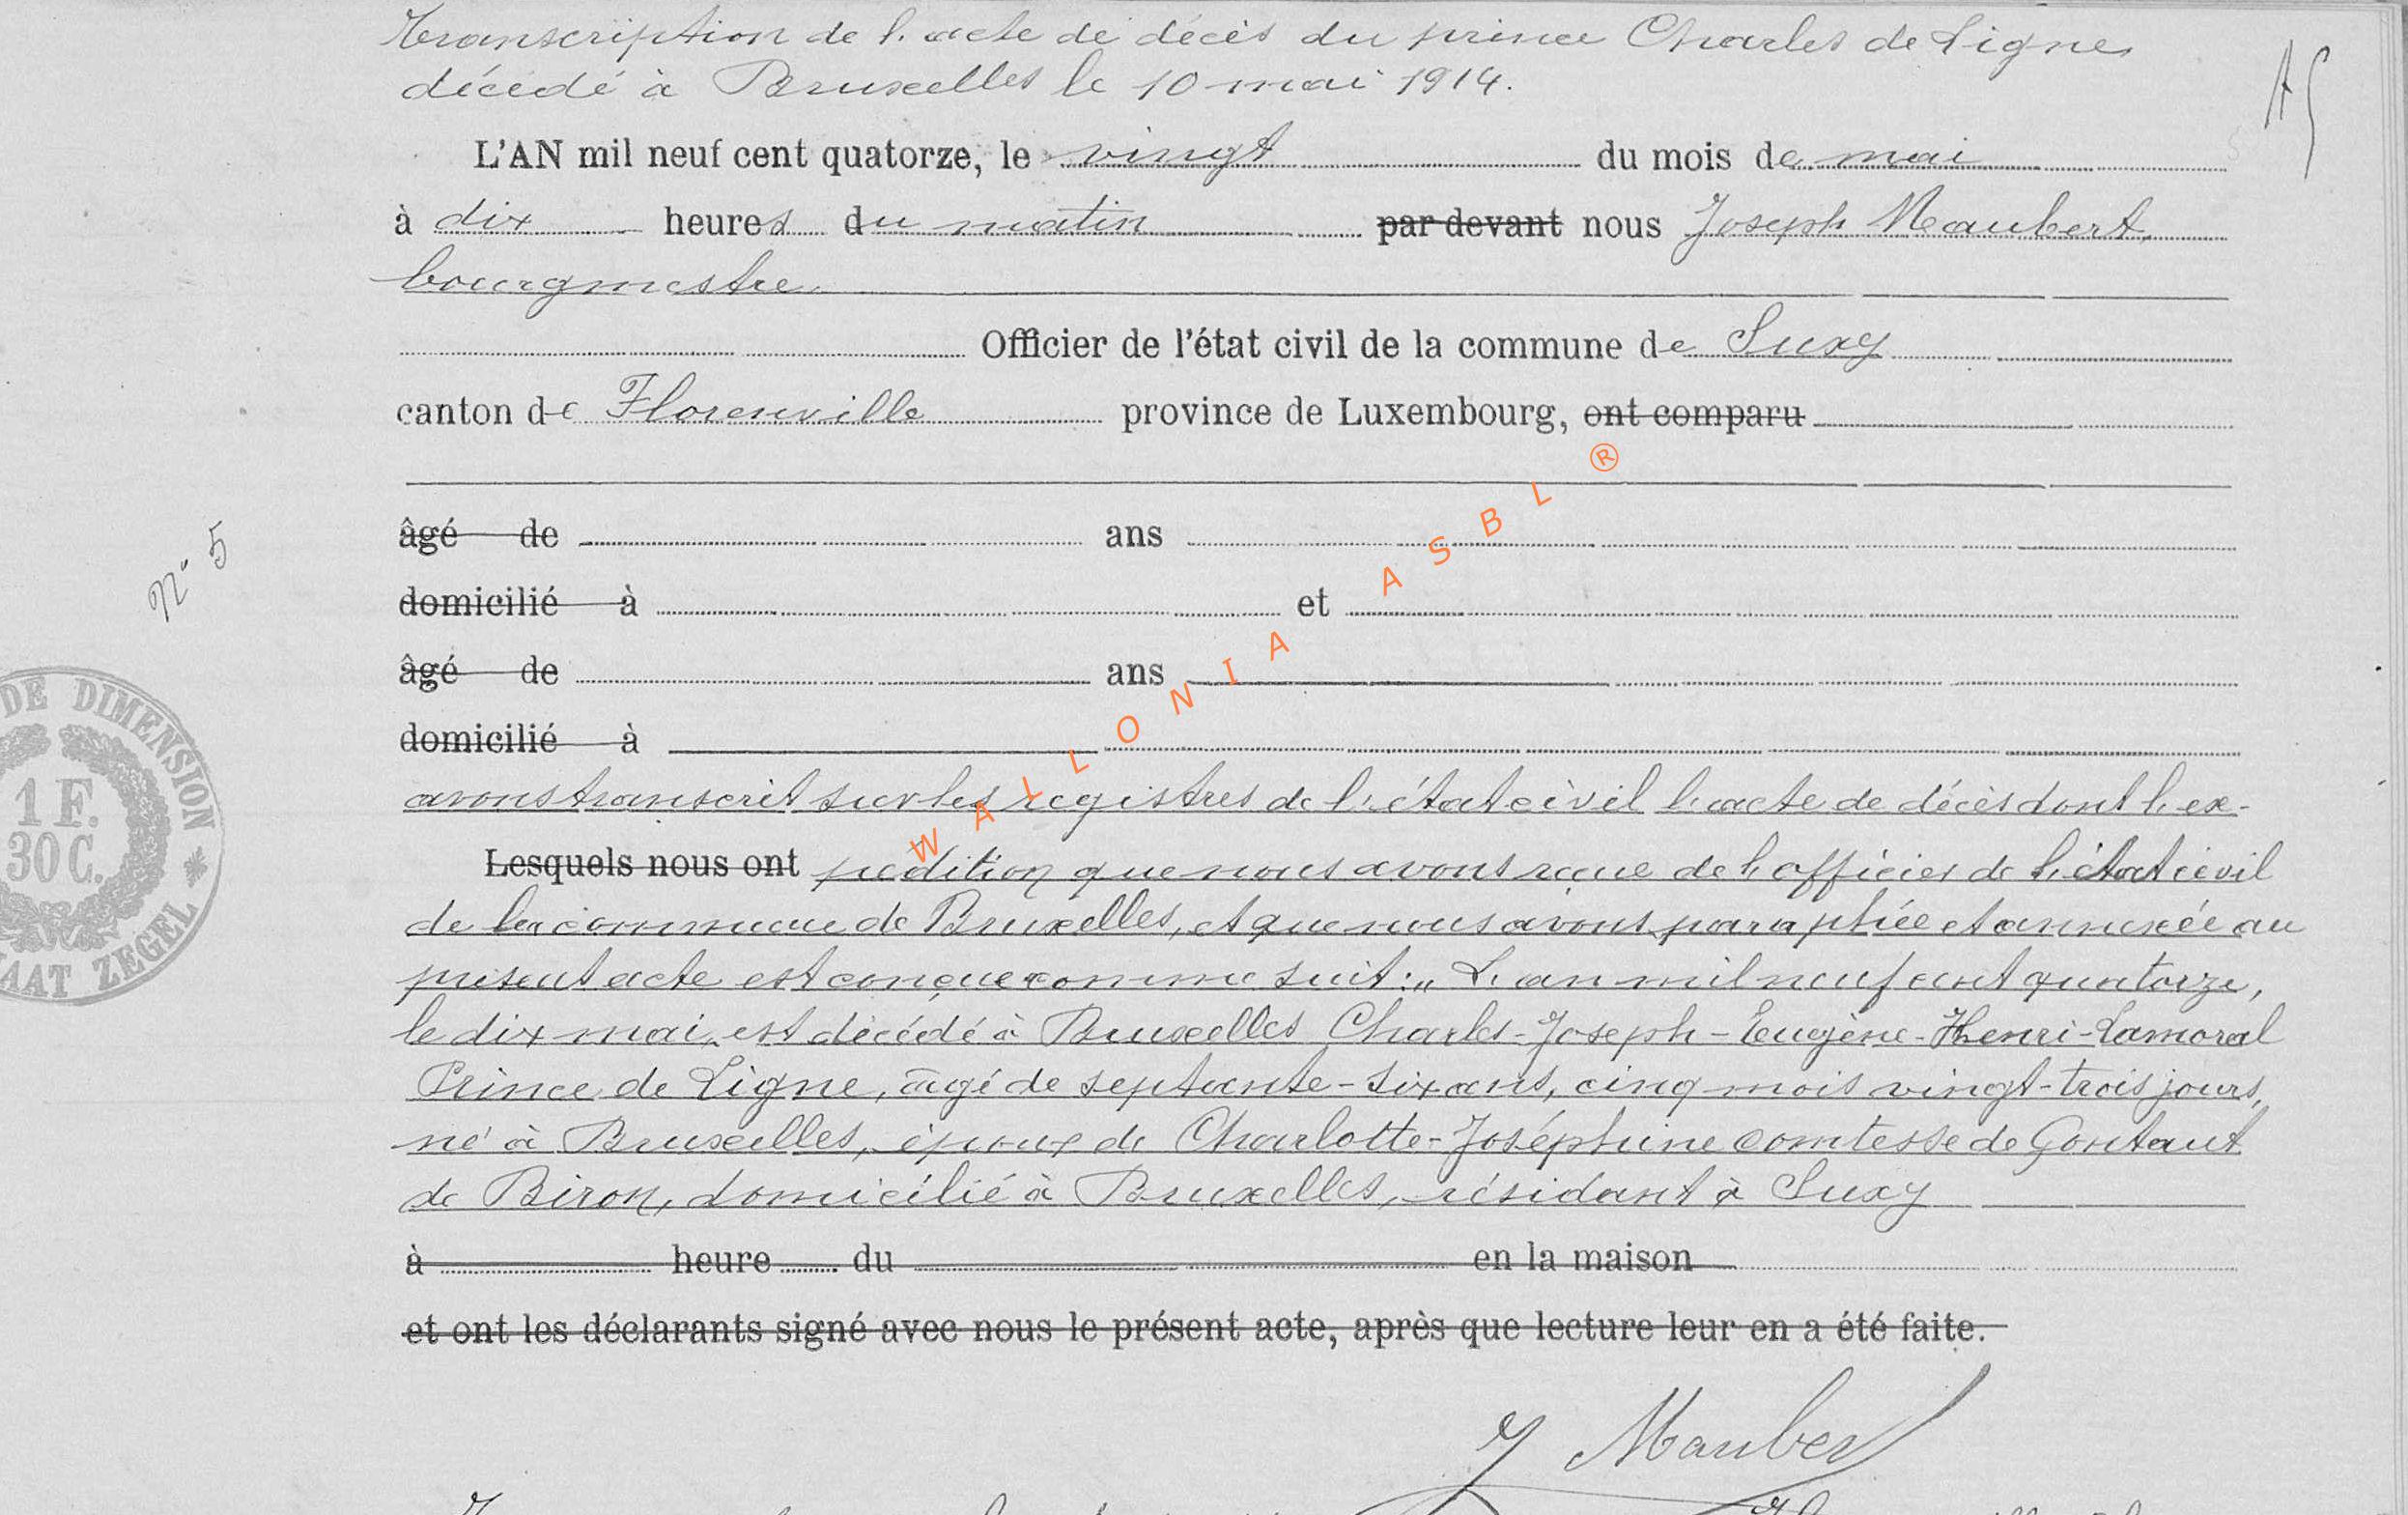 Transcription de l'acte de décès du prince Charles de Ligne,
décédé à Bruxelles le 10 mai 1914.
L'AN mil neuf cent quatorze, le vingt du mois de mai
à dix heures du matin par devant nous Joseph Maubert,
bourgmestre
Officier de l'état civil de la commune de Suxy
canton de Florenville province de Luxembourg, ont comparu
âgé de ans
domicilié à et
âgé de ans
domicilié à
avons transcrit sur les registres de l'état civil l'acte de décès dont l'ex-
Lesquels nous ont pédition que nous avons reçue de l'officier de l'état civil
de la commune de Bruxelles, et que nous avons paraphée et annexée au
présent acte est conçue comme suit : „ L'an mil neuf cent quatorze,
le dix mai, est décédé à Bruxelles Charles-Joseph-Eugène-Henri-Lamoral
Prince de Ligne, âgé de septante-six ans, cinq mois vingt-trois jours,
né à Bruxelles, époux de Charlotte-Joséphine comtesse de Gontaut
de Biron, domicilié à Bruxelles, résidant à Suxy
à heure du en la maison
et ont les déclarants signé avec nous le présent acte, après que lecture leur en a été faite.
J Maubert
N° 5
DE DIMENSION
1 F.
30 C.
AAT ZEGEL
WALLONIA ASBL ®